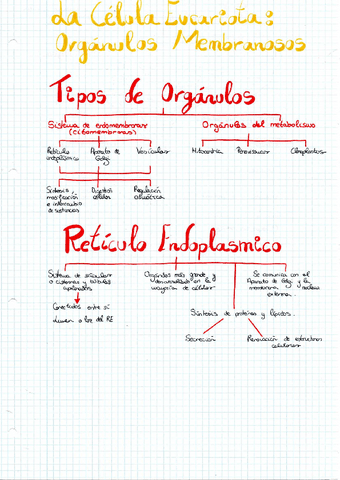 La Célula Eucariota:
Orgánulos Membranosos
Tipos de Orgánulos
Sistema de endomembranas
(citomembranas)
Orgánulos del metabolismo
Retículo
endoplásmico
Aparato de
Golgi
Vesículas
Mitocondria
Peroxisomas
Cloroplastos
Síntesis,
modificación
e intercambio
de sustancias
Digestión
celular
Regulación
osmótica
Retículo Endoplasmico
Sistema de sáculos
o cisternas y túbulos
aplanados
Conectados entre sí
Lumen o luz del RE
Orgánulo más grande y
desarrollado en la
mayoría de células
Se comunica con el
Aparato de Golgi y la
membrana nuclear
externa.
Síntesis de proteínas y lípidos.
Secreción
Renovación de estructuras
celulares